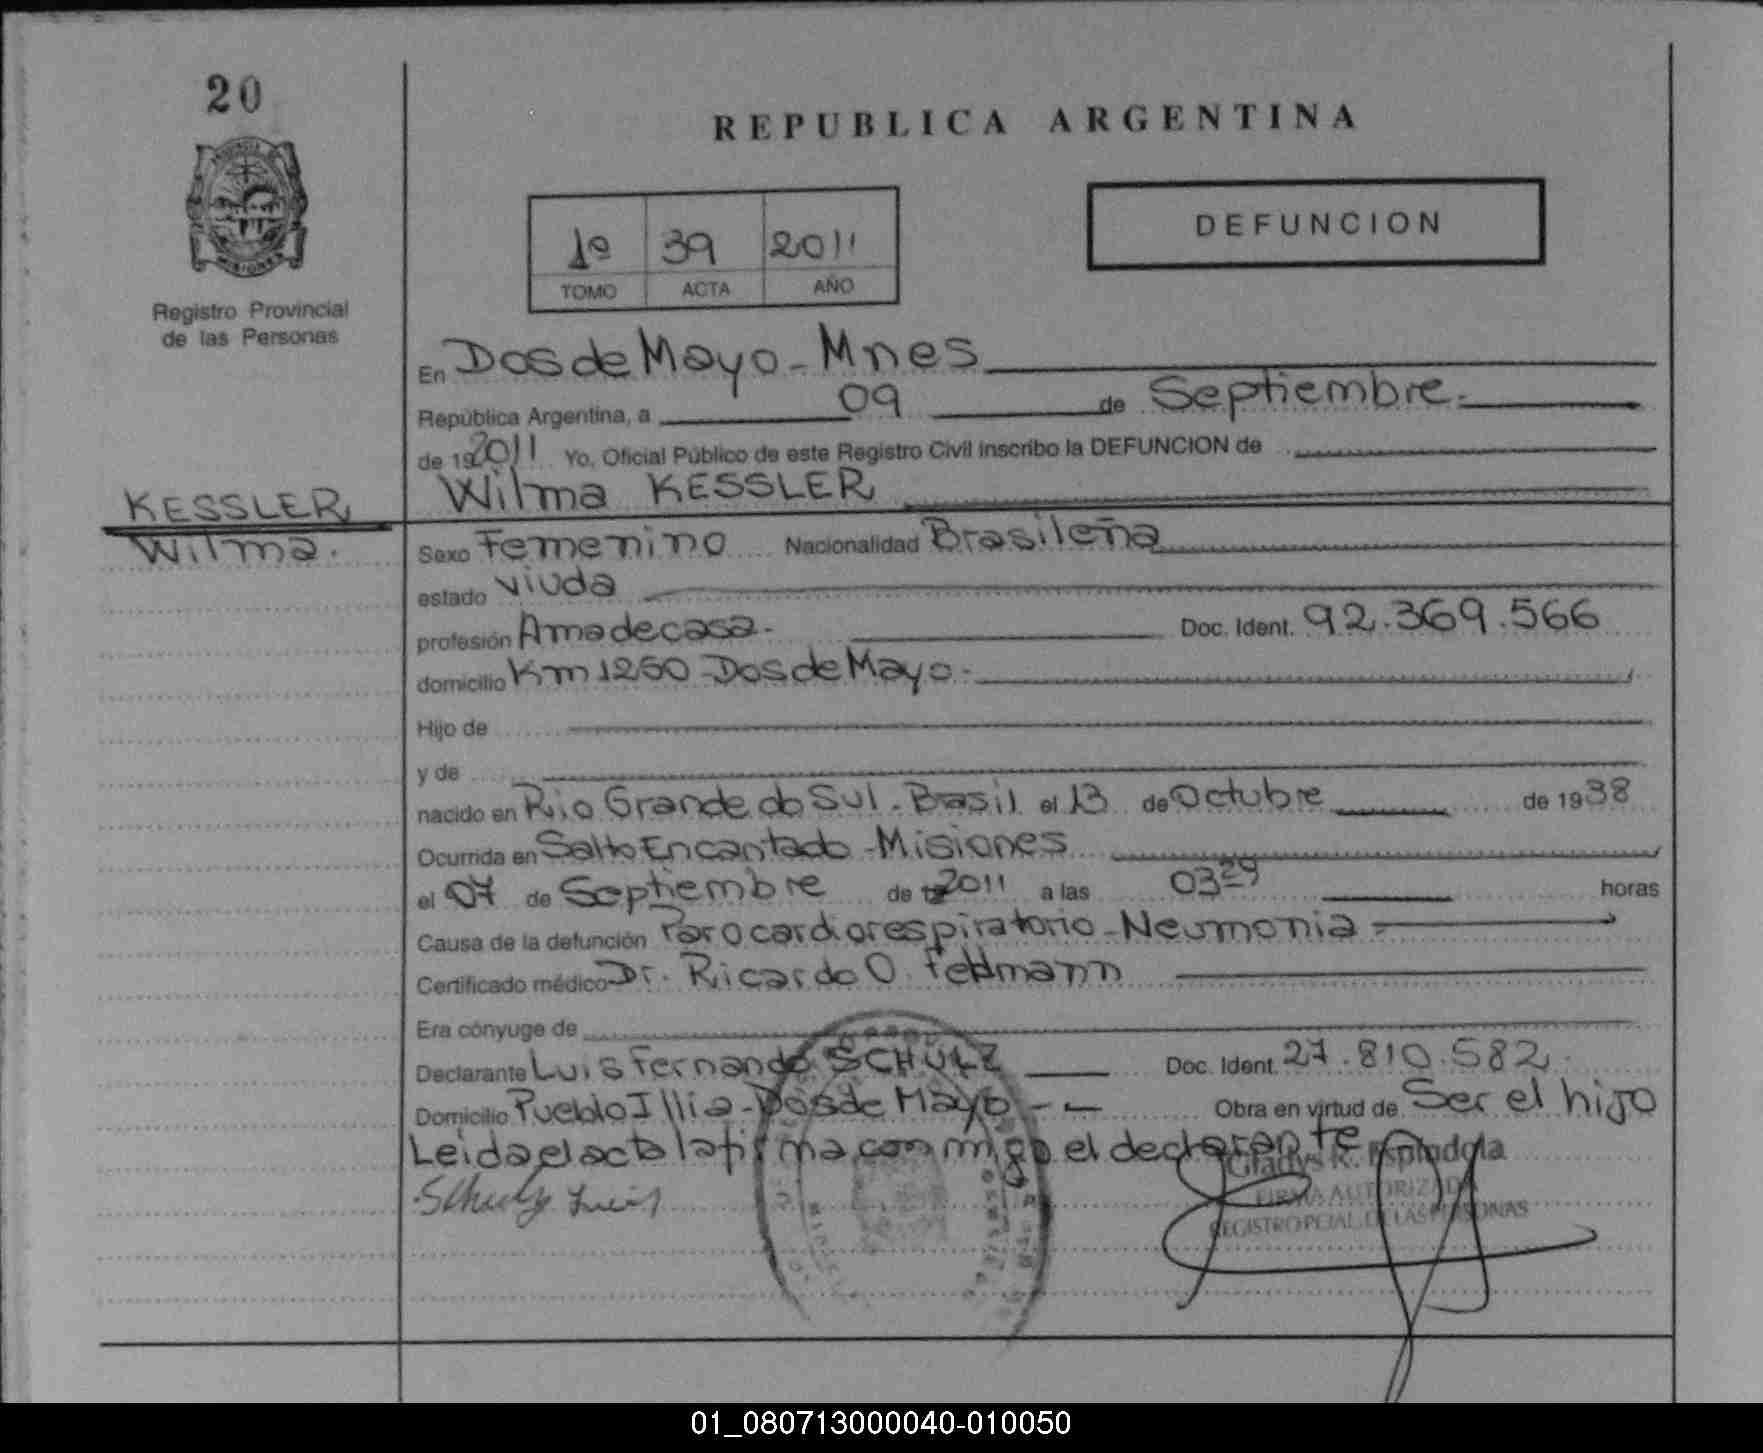 20
REPUBLICA ARGENTINA
DEFUNCION
1º 39 2011
TOMO ACTA AÑO
Registro Provincial
de las Personas
En Dos de Mayo - Mnes
República Argentina, a 09 de Septiembre.
de 19 2011 Yo, Oficial Público de este Registro Civil inscribo la DEFUNCION de
Wilma KESSLER
KESSLER
Wilma.
Sexo Femenino Nacionalidad Brasileña
estado viuda
profesión Ama de casa. Doc. Ident. 92.369.566
domicilio Km 1260 Dos de Mayo.
Hijo de
y de
nacido en Rio Grande do Sul. Brasil el 13 de Octubre de 1938
Ocurrida en Salto Encantado - Misiones
el 07 de Septiembre de 2011 a las 03 29 horas
Causa de la defunción Paro cardiorespiratorio - Neumonia
Certificado médico Dr. Ricardo O. Feltmann
Era cónyuge de
Declarante Luis Fernando SCHULZ Doc. Ident. 27.810.582
Domicilio Pueblo Illia - Dos de Mayo - Obra en virtud de Ser el hijo
Leida el acta la firma conmigo el declarante
Schulz Luis
Gladys R. Espindola
FIRMA AUTORIZADA
REGISTRO PCIAL. DE LAS PERSONAS
01_080713000040-010050